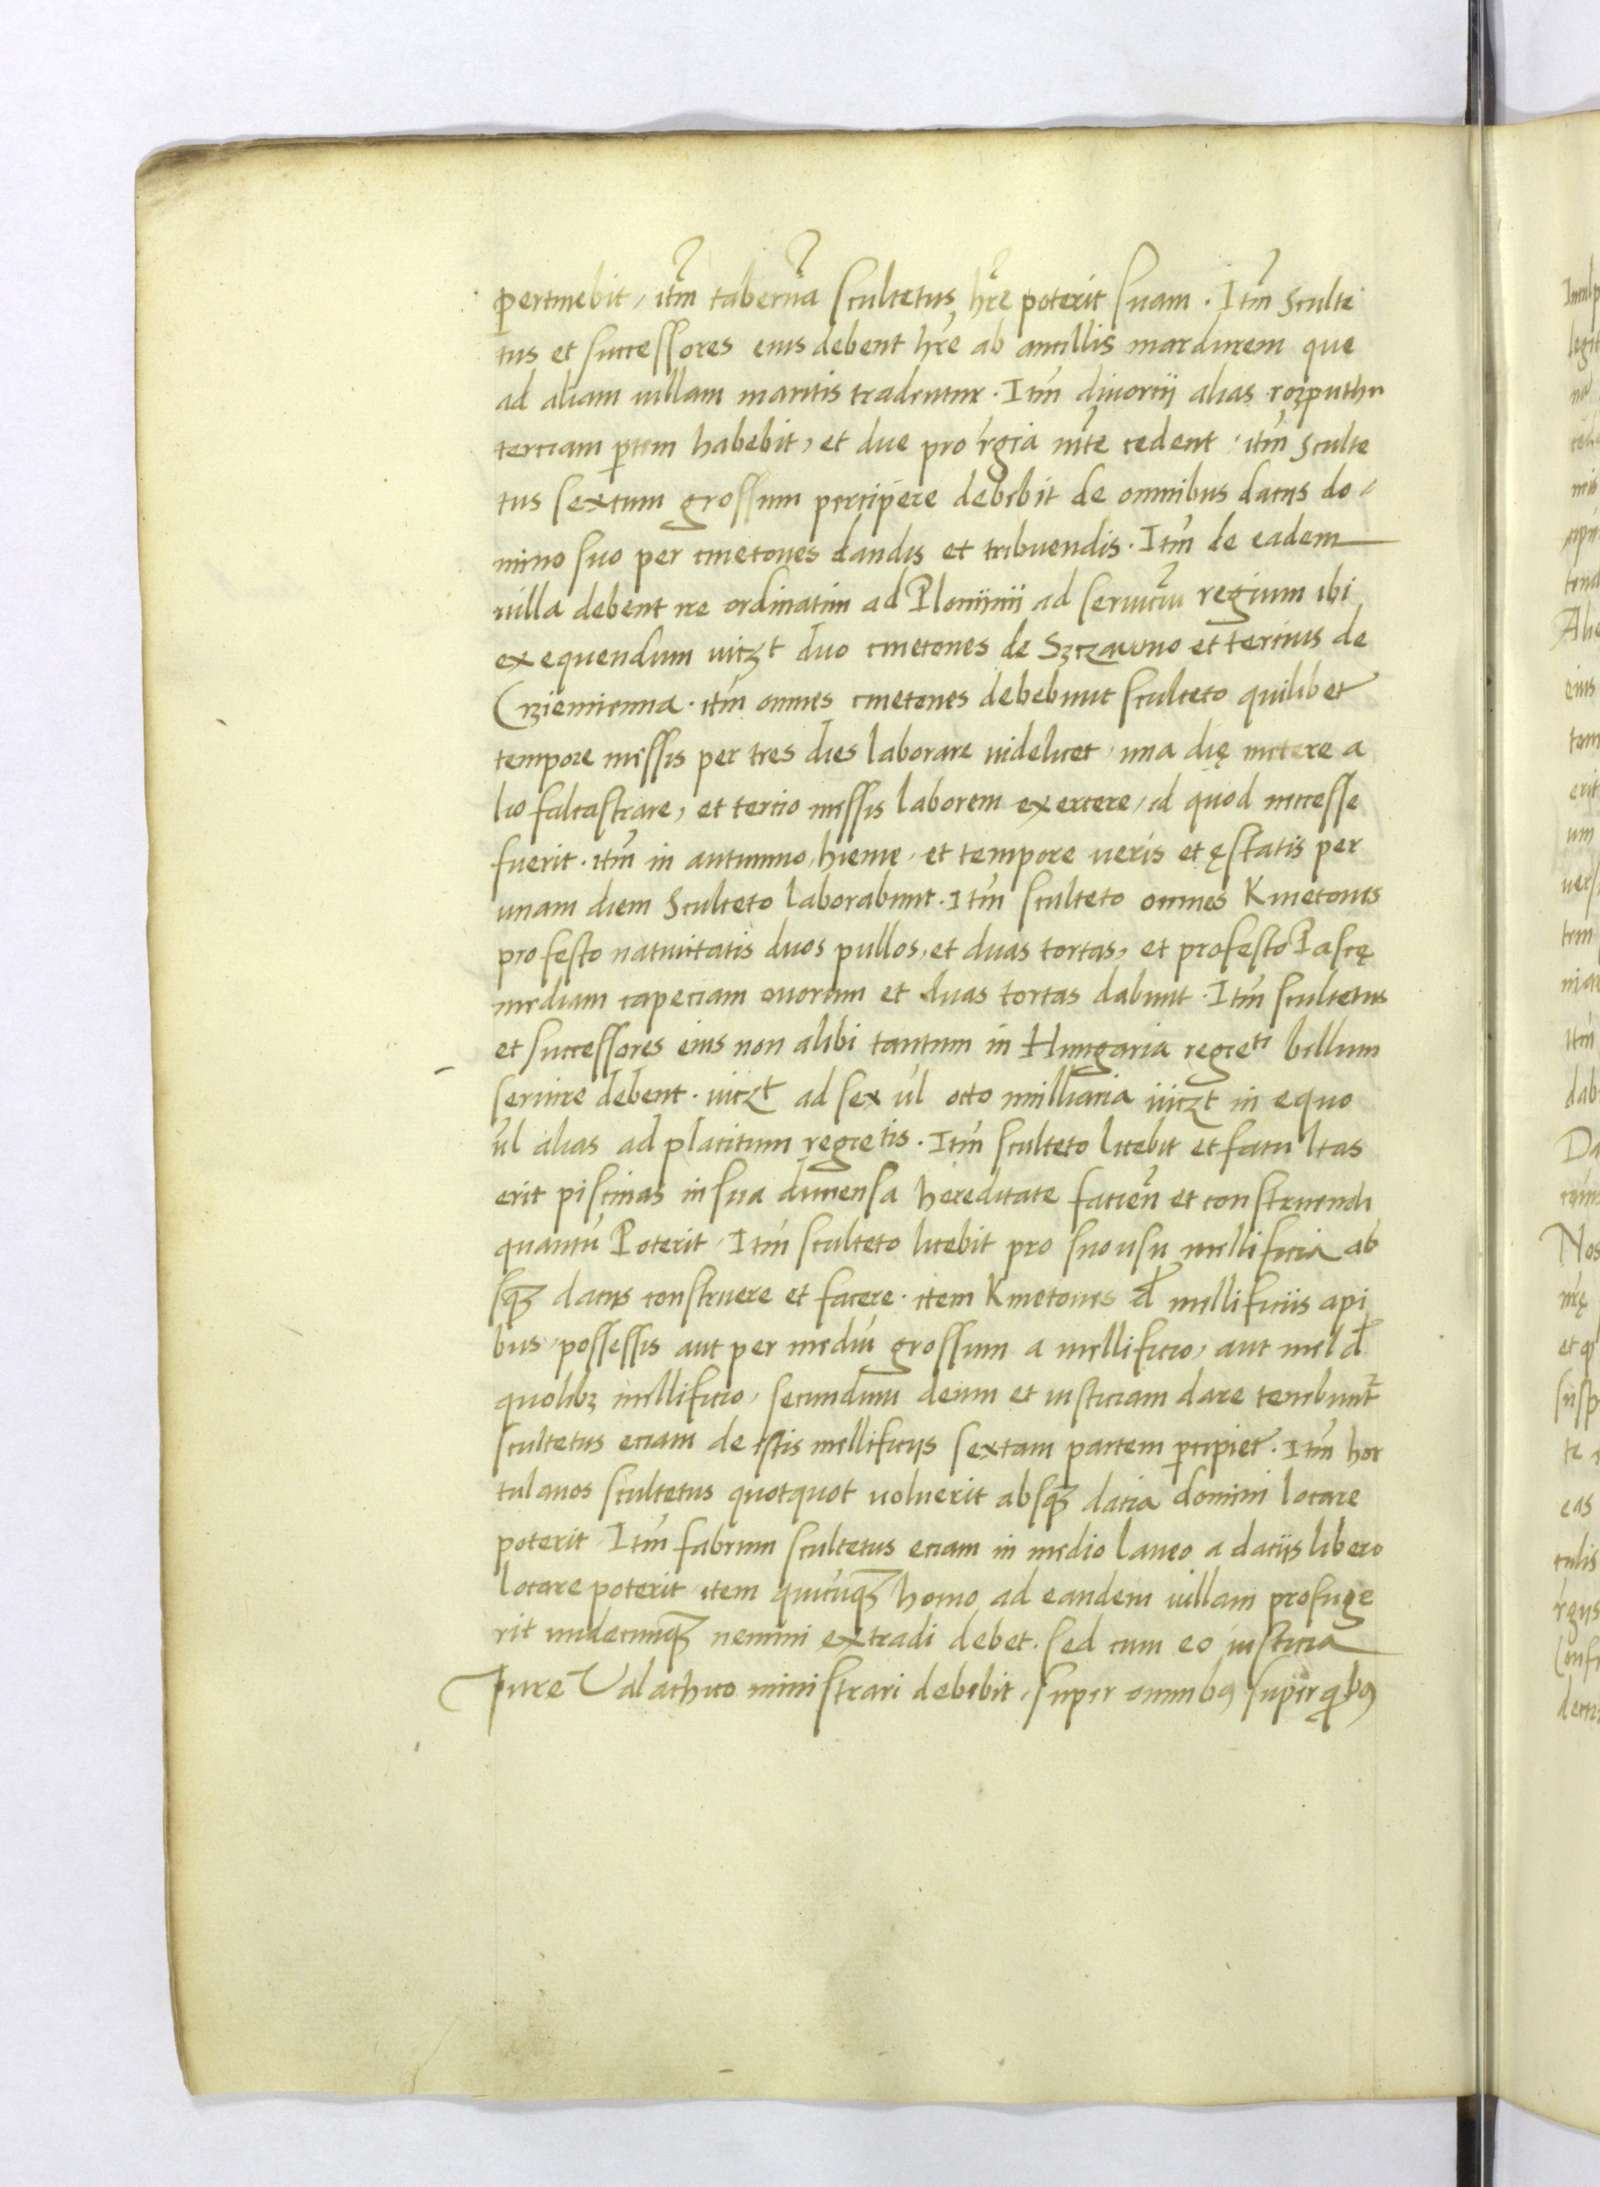 pertinebit, itm̃ taberña scultetus hr̃e poterit suam. Itm̃ sculte
tus et successores eius debent hr̃e ab ancillis mardurem que
ad aliam uillam maritis tradentur. Itm̃ diuortii alias rozputhu
terciam ptem habebit, et due pro r̃gia mt̃e cedent, itm̃ sculte
tus sextum grossum percipere debebit de omnibus datijs do-
mino suo per cmetones dandis et tribuendis. Itm̃ de eadem
uilla debent ire ordinatim ad Plonijnij ad seruiciũ regium ibi
exequendum uiczt duo cmetones de Szczawno et tercius de
Cziemienna. itm̃ omnes cmetones debebunt sculteto quilibet
tempore messis per tres dies laborare uidelicet, una die metere a
lio falcastrare, et tercio messis laborem exercere, id quod necesse
fuerit. itm̃ in autumno, hieme, et tempore ueris et ęstatis per
unam diem Sculteto laborabunt. Itm̃ sculteto omnes Kmetones
profesto natiuitatis duos pullos, et duas tortas, et profesto Pascę
mediam capeciam ouorum et duas tortas dabunt. Itm̃ scultetus
et successores eius non alibi tantum in Hungaria regie ti bellum
seruire debent. uiczt ad sex ul̃ octo milliaria uiczt in equo
ul̃ alias ad placitum regie tis. Itm̃ sculteto licebit et facultas
erit piscinas in sua dimensa hereditate facieñ et construendi
quantũ Poterit. Itm̃ sculteto licebit pro suo usu mellificia ab
sqz datijs construere et facere. item Kmetones d mellificiis api
bus, possessis aut per mediũ grossum a mellificio, aut mel d
quolibz mellificio, secundum deum et iusticiam dare tenebunt
scultetus eciam de istis mellificijs sextam partem pcipiet. Itm̃ hor
tulanos scultetus quotquot uoluerit absqz datia domini locare
poterit Itm̃ fabrum scultetus eciam in medio laneo a datijs libero
locare poterit item quicũqz homo ad eandem uillam profuge
rit undecunqz nemini extradi debet. sed cum eo iusticia
Iure Valachico ministrari debebit, super omnibq superqbq